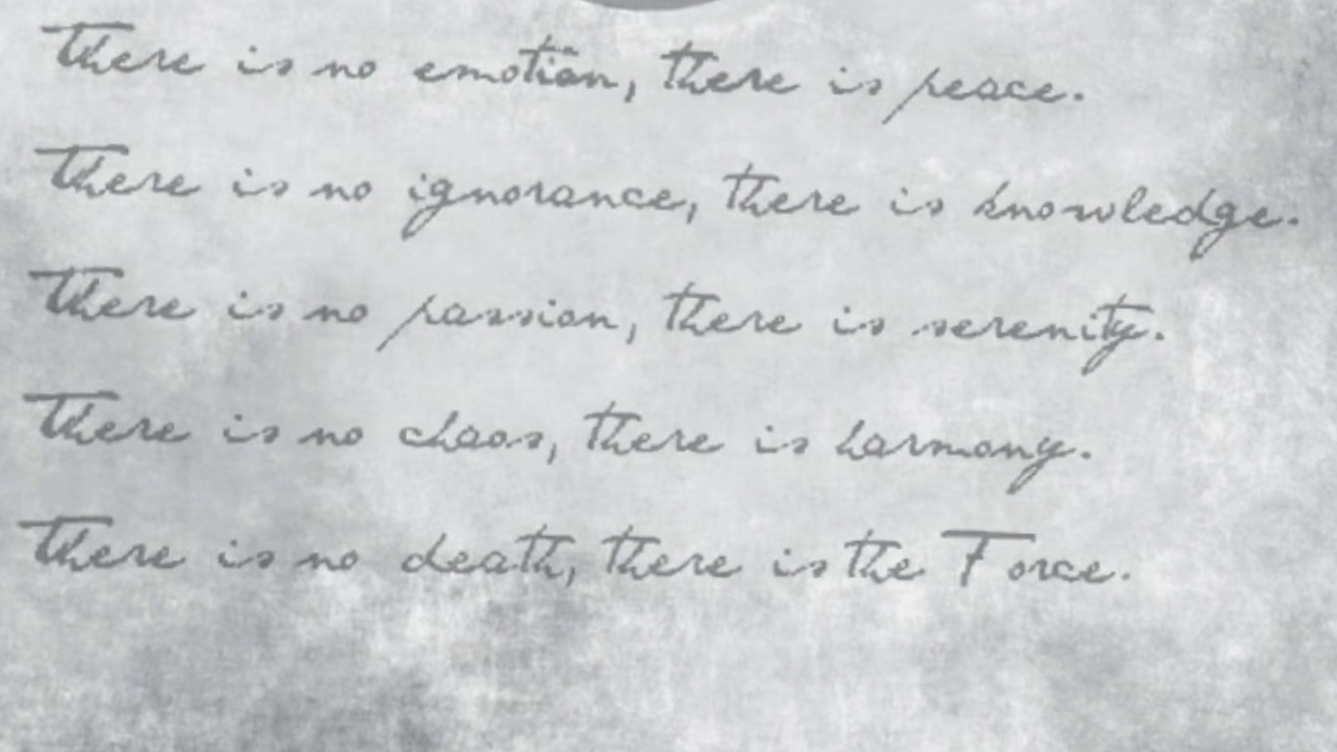 There is no emotion, there is peace.
There is no ignorance, there is knowledge.
There is no passion, there is serenity.
There is no chaos, there is harmony.
There is no death, there is the Force.